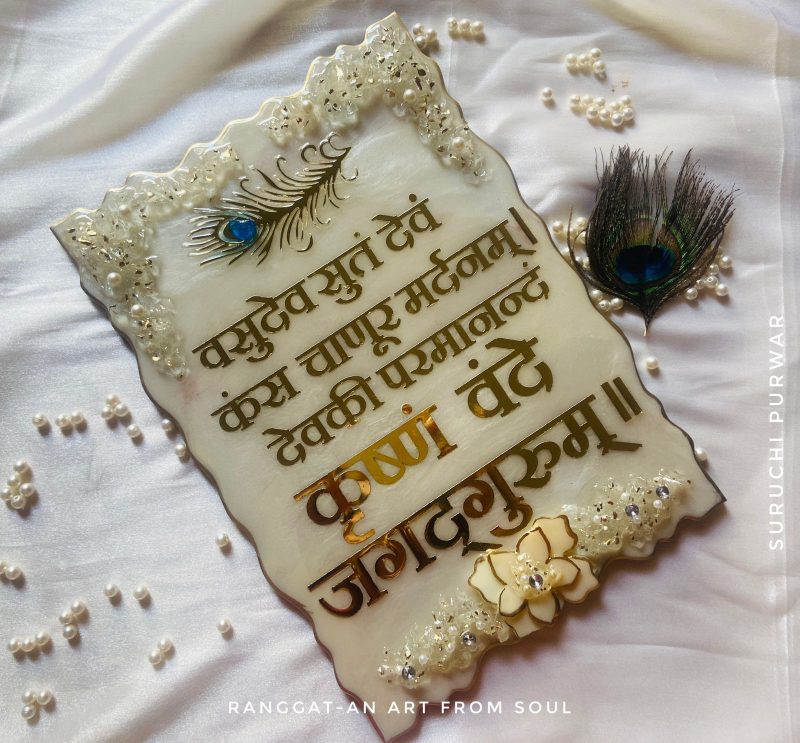 वसुदेव सुतं देवं
कंस चाणूर मर्दनम्।
देवकी परमानन्दं
कृष्णं वंदे
जगद्गुरुम्॥
SURUCHI PURWAR
RANGGAT-AN ART FROM SOUL